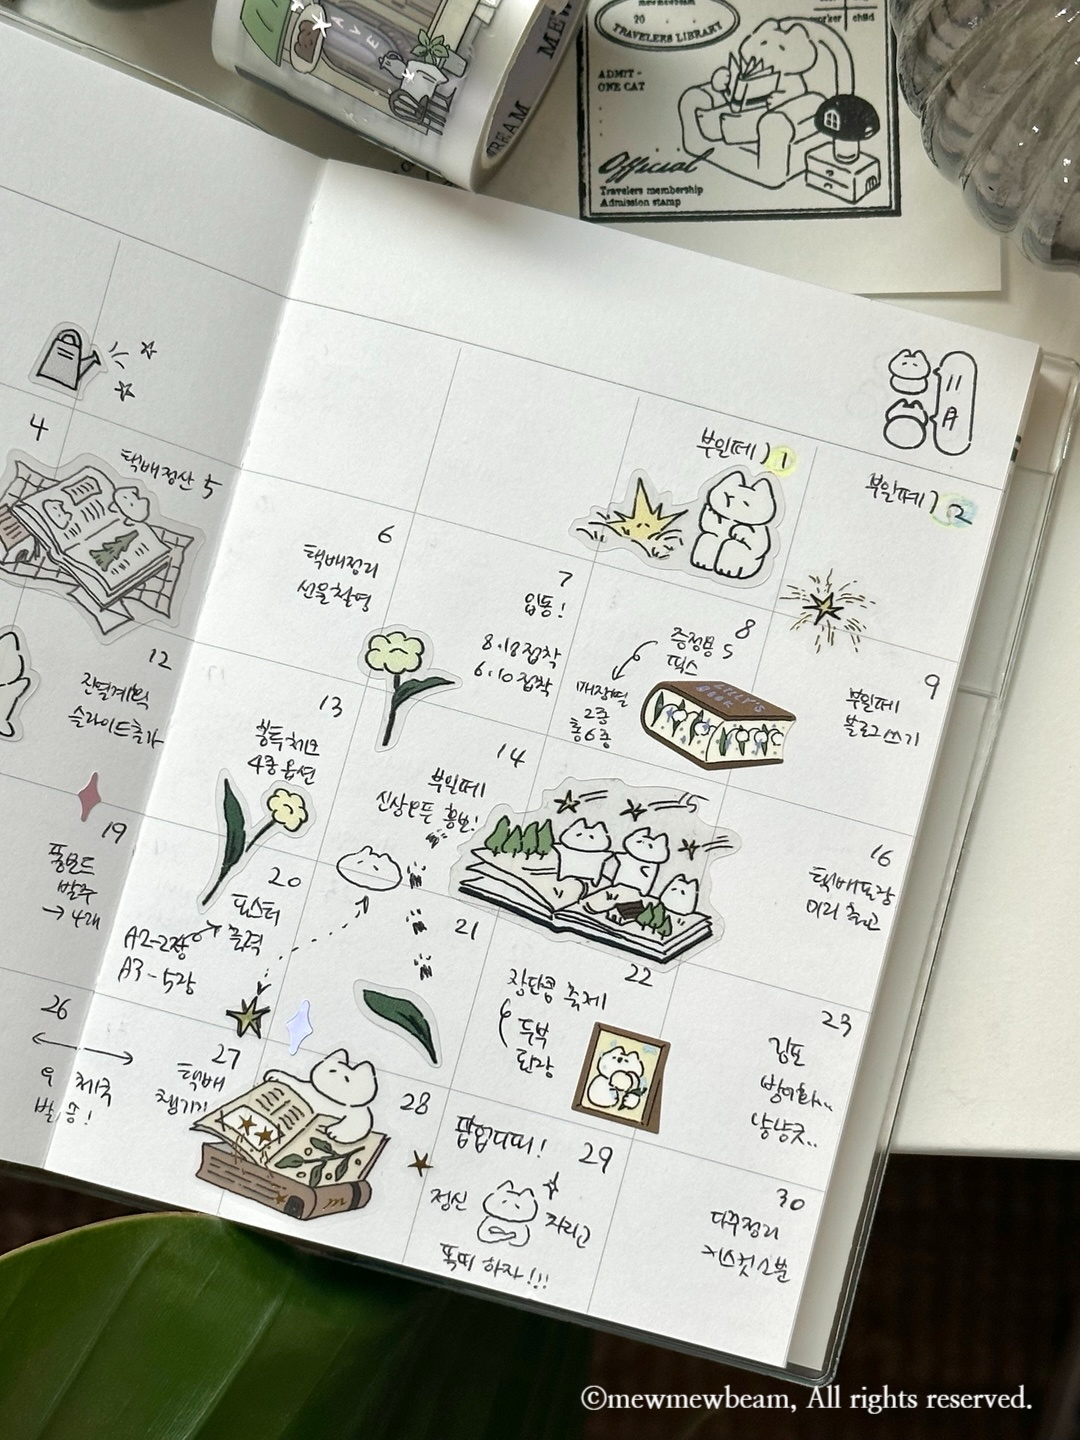 MEW
BEAM
20
TRAVELERS LIBRARY
worker child
ADMIT-
ONE CAT
Official
Travelers membership
Admission stamp
11
月
부일페 1
부일페 2
4
택배정산 5
6
택배정리
선물촬영
7
입동!
8·12 접착
6·10 접착
8
증정용 5
떡스
매장별
2종
총 6종
LILLY'S
BOOK
9
부일페
블로그 쓰기
12
진열계획
슬라이드 추가
13
4종 옵션
14
부일페
신상모든 홍보!
16
택배포장
미리 출고
19
폼보드
발주
→ 4개
20
포스터
출력
A2-2장
A3-5장
21
22
장단콩 축제
두부
된장
23
김포
방어회..
냥냥굿..
26
9 체국
발 송!
27
택배
챙기기
28
29
팝업디피!
정신 차리고
똑띠 하자!!!
30
다꾸정리
키스컷 소분
©mewmewbeam, All rights reserved.